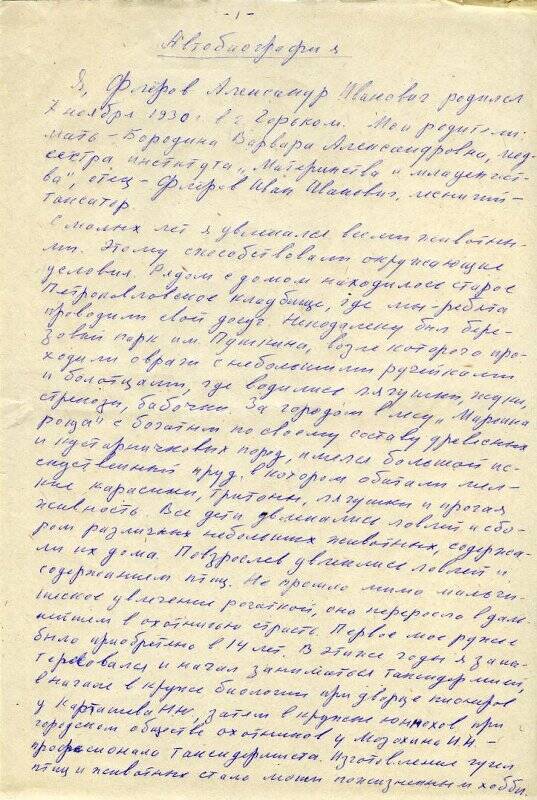 - 1 -
Автобиография
Я, Флёров Александр Иванович родился
7 ноября 1930 г. в г. Горьком. Мои родители:
мать - Бородина Варвара Александровна, мед-
сестра института „Материнства и младенчест-
ва", отец - Флёров Иван Иванович, лесничий-
таксатор.
С малых лет я увлекался всеми животны-
ми. Этому способствовали окружающие
условия. Рядом с домом находилось старое
Петропавловское кладбище, где мы - ребята
проводили свой досуг. Неподалеку был бере-
зовый парк им. Пушкина, возле которого про-
ходили овраги с небольшими ручейками
и болотцами, где водились лягушки, жуки,
стрекозы, бабочки. За городом в лесу „Марьина
роща" с богатым по своему составу древесных
и кустарничковых пород, имелся большой ис-
кусственный пруд, в котором обитали мел-
кие карасики, тритоны, лягушки и прочая
живность. Все дети увлекались ловлей и сбо-
ром различных небольших животных, содержа-
ли их дома. Повзрослев увлеклись ловлей и
содержанием птиц. Не прошло мимо мальчи-
шеское увлечение рогаткой, оно переросло в даль-
нейшем в охотничью страсть. Первое мое ружье
было приобретено в 14 лет. В эти же годы я заин-
тересовался и начал заниматься таксидермией,
вначале в кружке биологии при дворце пионеров
у Карташева Н.Н., затем в кружке юннохов, при
городском обществе охотников у Мозохина И.Н. -
профессионала таксидермиста. Изготовление чучел
птиц и животных стало моим пожизненным хобби.